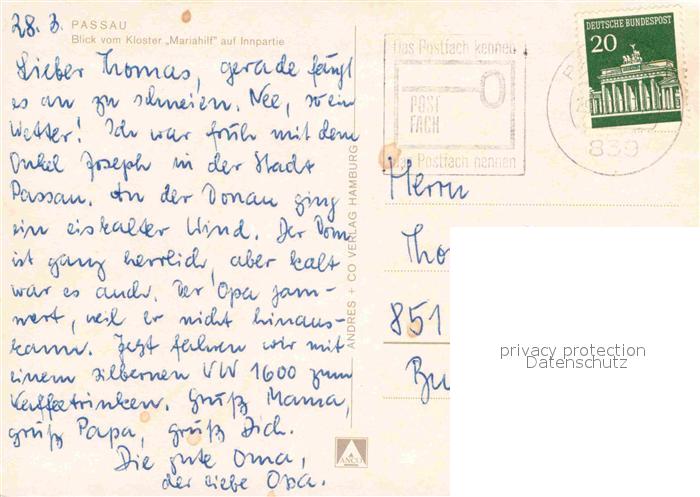 28.3. PASSAU
Blick vom Kloster „Mariahilf" auf Innpartie
Lieber Thomas, gerade fängt
es an zu schneien. Nee, so ein
Wetter! Ich war früh mit dem
Onkel Joseph in der Stadt
Passau. An der Donau ging
ein eiskalter Wind. Der Dom
ist ganz herrlich, aber kalt
war es auch. Der Opa jam-
mert, weil er nicht hinaus-
kann. Jetzt fahren wir mit
einem silbernen VW 1600 zum
Kaffeetrinken. Grüß Mama,
grüß Papa, grüß Dich.
Die gute Oma,
der liebe Opa.
ANDRES + CO VERLAG HAMBURG
ANCO
Das Postfach kennen
POST
FACH
Das Postfach nennen
DEUTSCHE BUNDESPOST
20
839
Herrn
Tho
851
privacy protection
Datenschutz